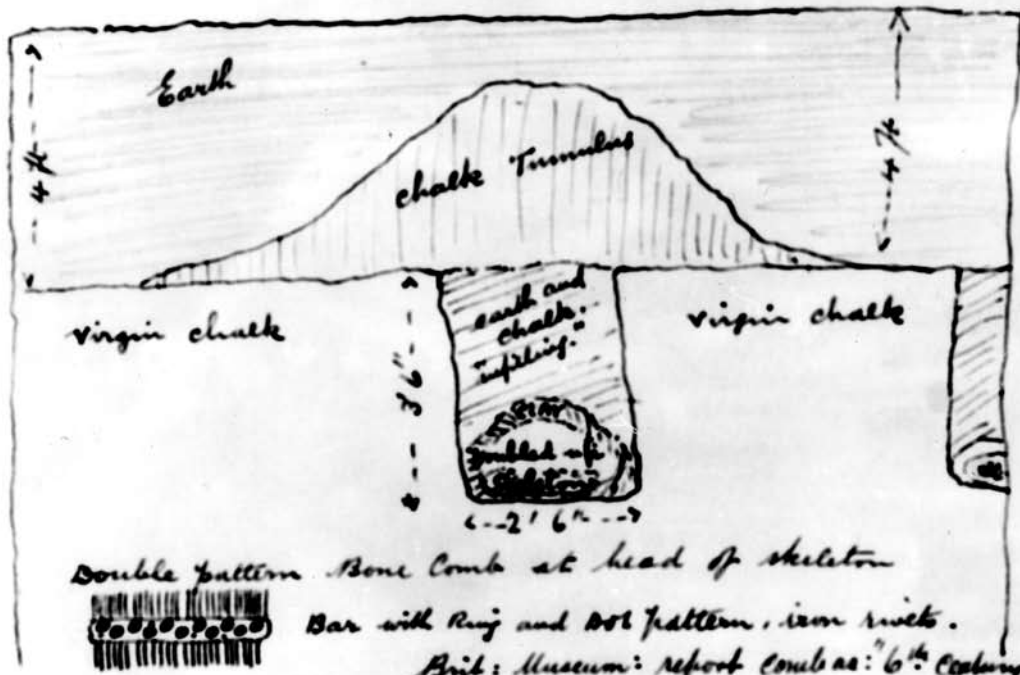 Earth
4 ft
4 ft
chalk Tumulus
virgin chalk
earth and
chalk.
"infilling."
virgin chalk
3' 6"
doubled up
skeleton
2' 6"
Double pattern Bone Comb at head of skeleton
Bar with Ring and Dot pattern, iron rivets.
Brit: Museum: report Comb as: "6th Century